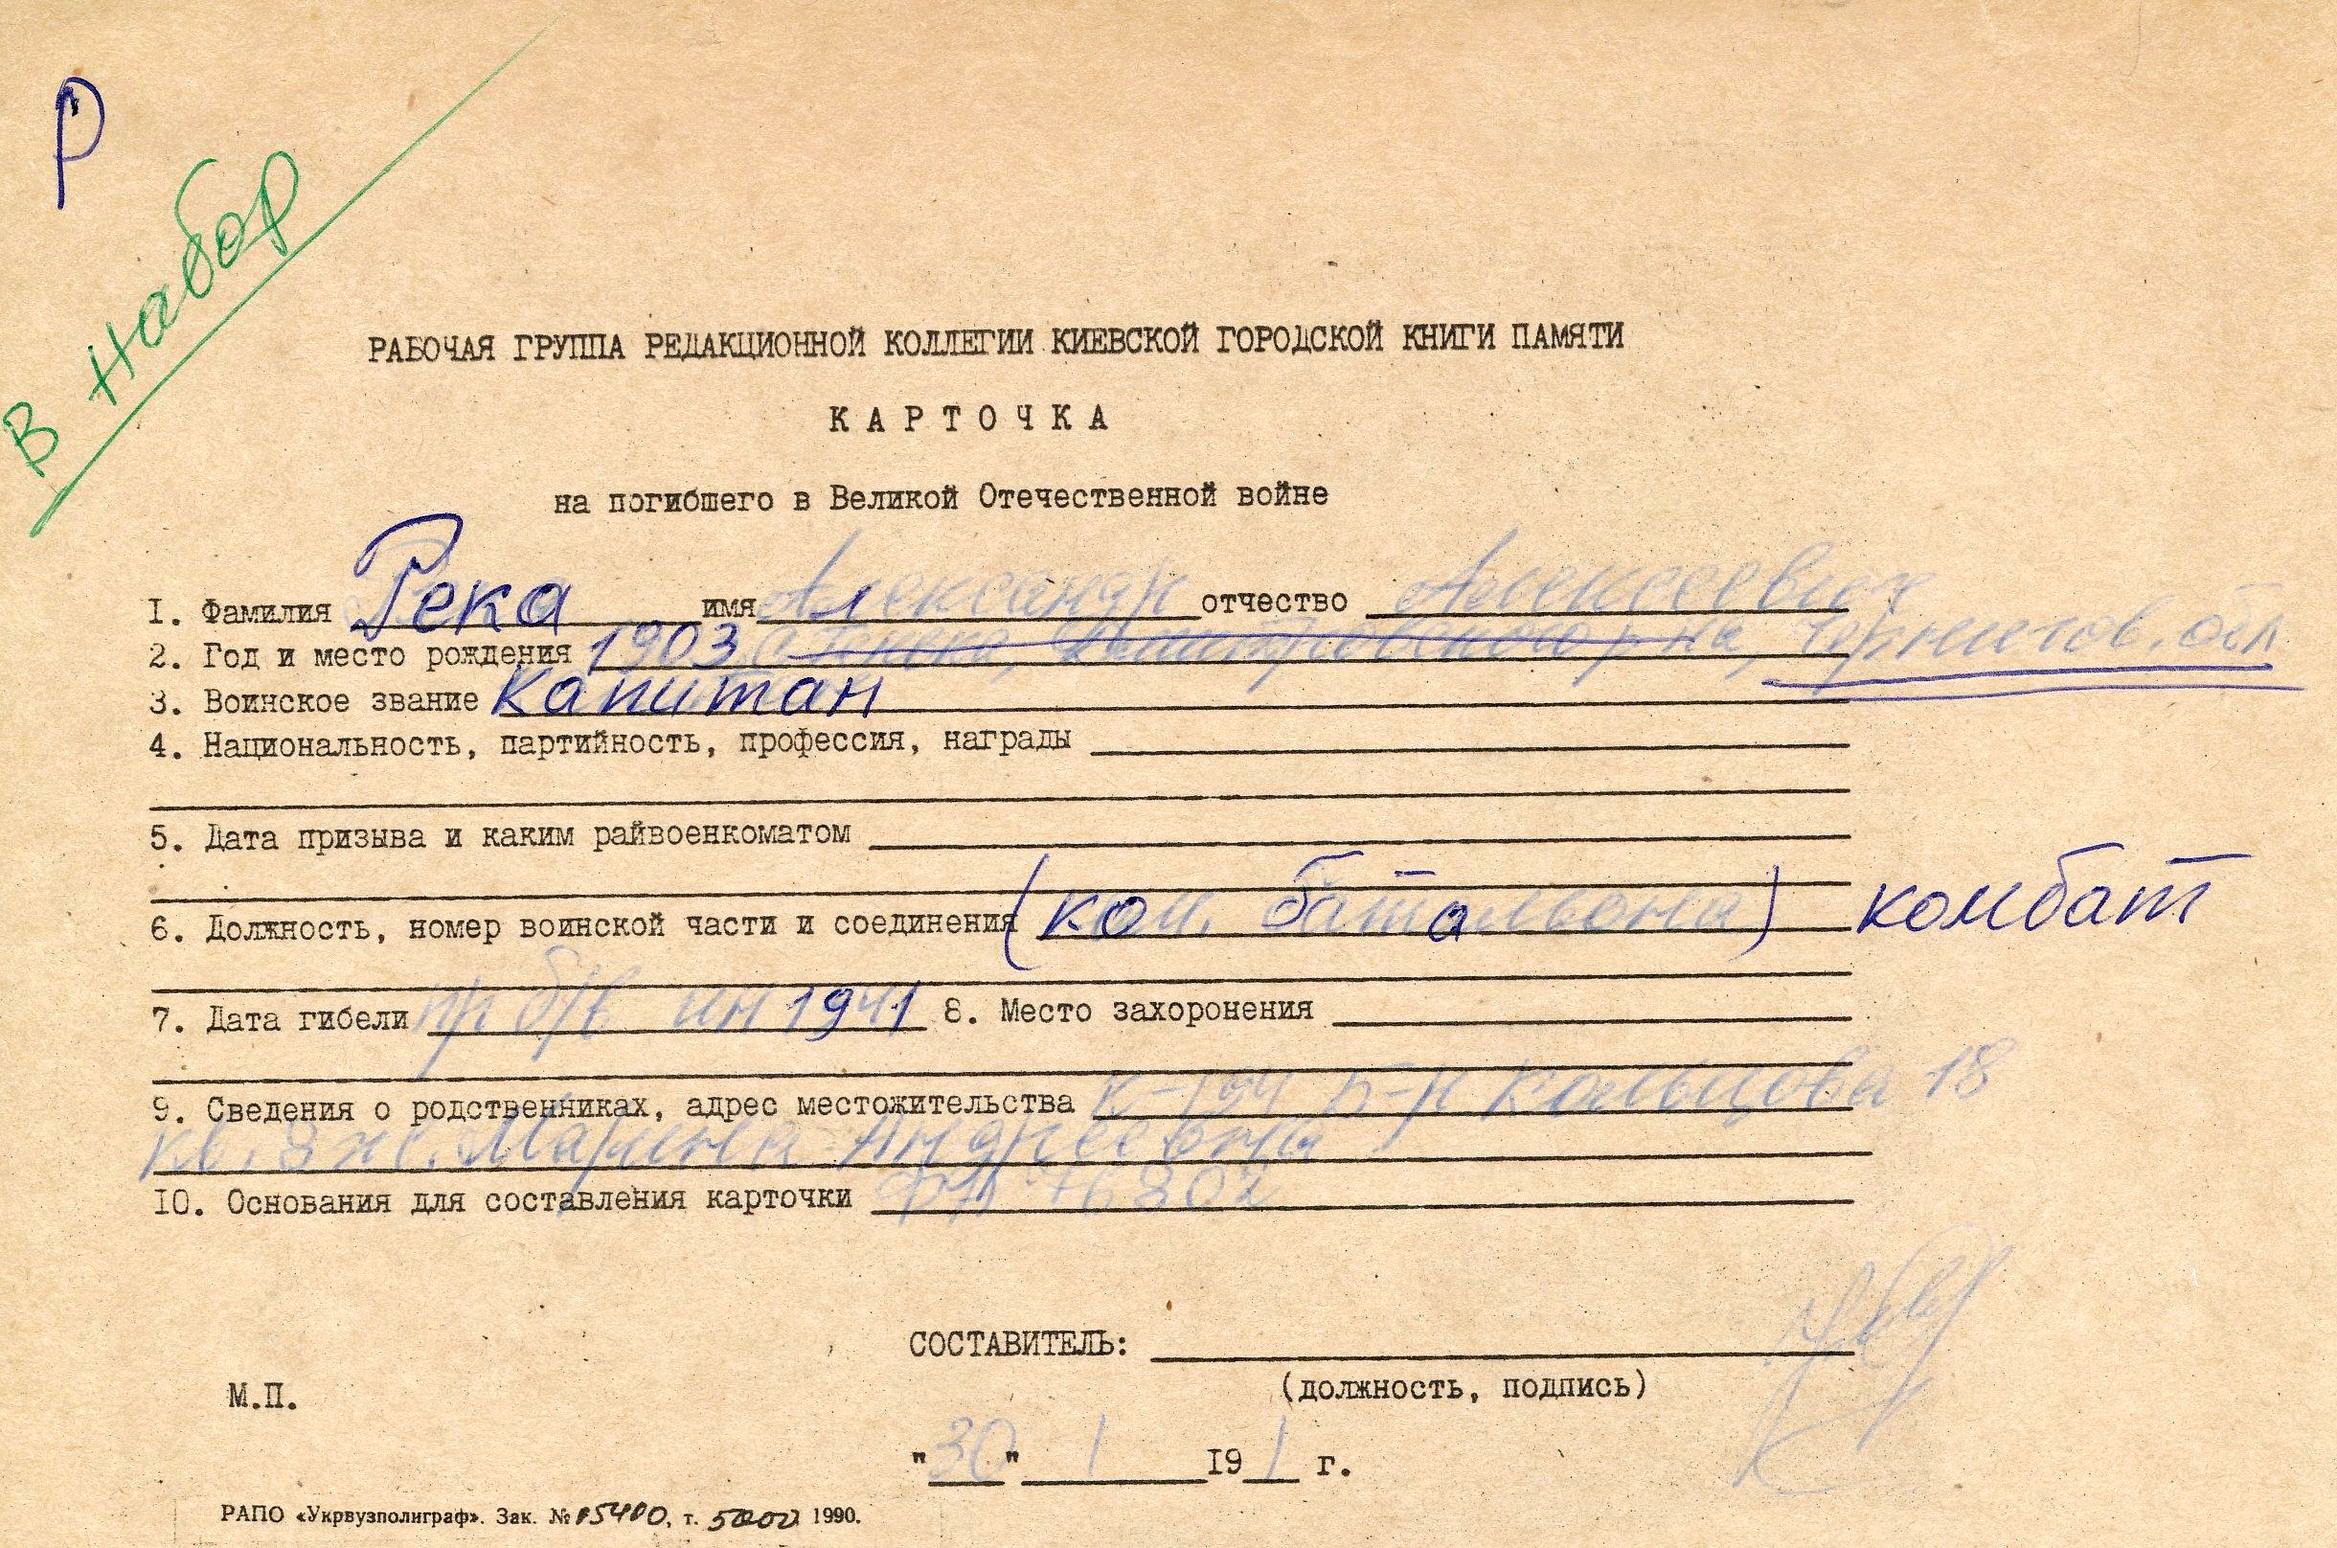 Р
В набор
РАБОЧАЯ ГРУППА РЕДАКЦИОННОЙ КОЛЛЕГИИ КИЕВСКОЙ ГОРОДСКОЙ КНИГИ ПАМЯТИ
КАРТОЧКА
на погибшего в Великой Отечественной войне
1. Фамилия Река имя Александр отчество Алексеевич
2. Год и место рождения 1903 Дмитровского р-на, Чернигов. обл
3. Воинское звание капитан
4. Национальность, партийность, профессия, награды
5. Дата призыва и каким райвоенкоматом
6. Должность, номер воинской части и соединения (ком. батальона) комбат
7. Дата гибели пр б/в 1941 8. Место захоронения
9. Сведения о родственниках, адрес местожительства К-194 б-р Кольцова 18
кв. 8 Марина Андреевна
10. Основания для составления карточки 76802
СОСТАВИТЕЛЬ:
(должность, подпись)
М.П.
"30" 1 191 г.
РАПО «Укрвузполиграф». Зак. № 05400, т. 5000 1990.